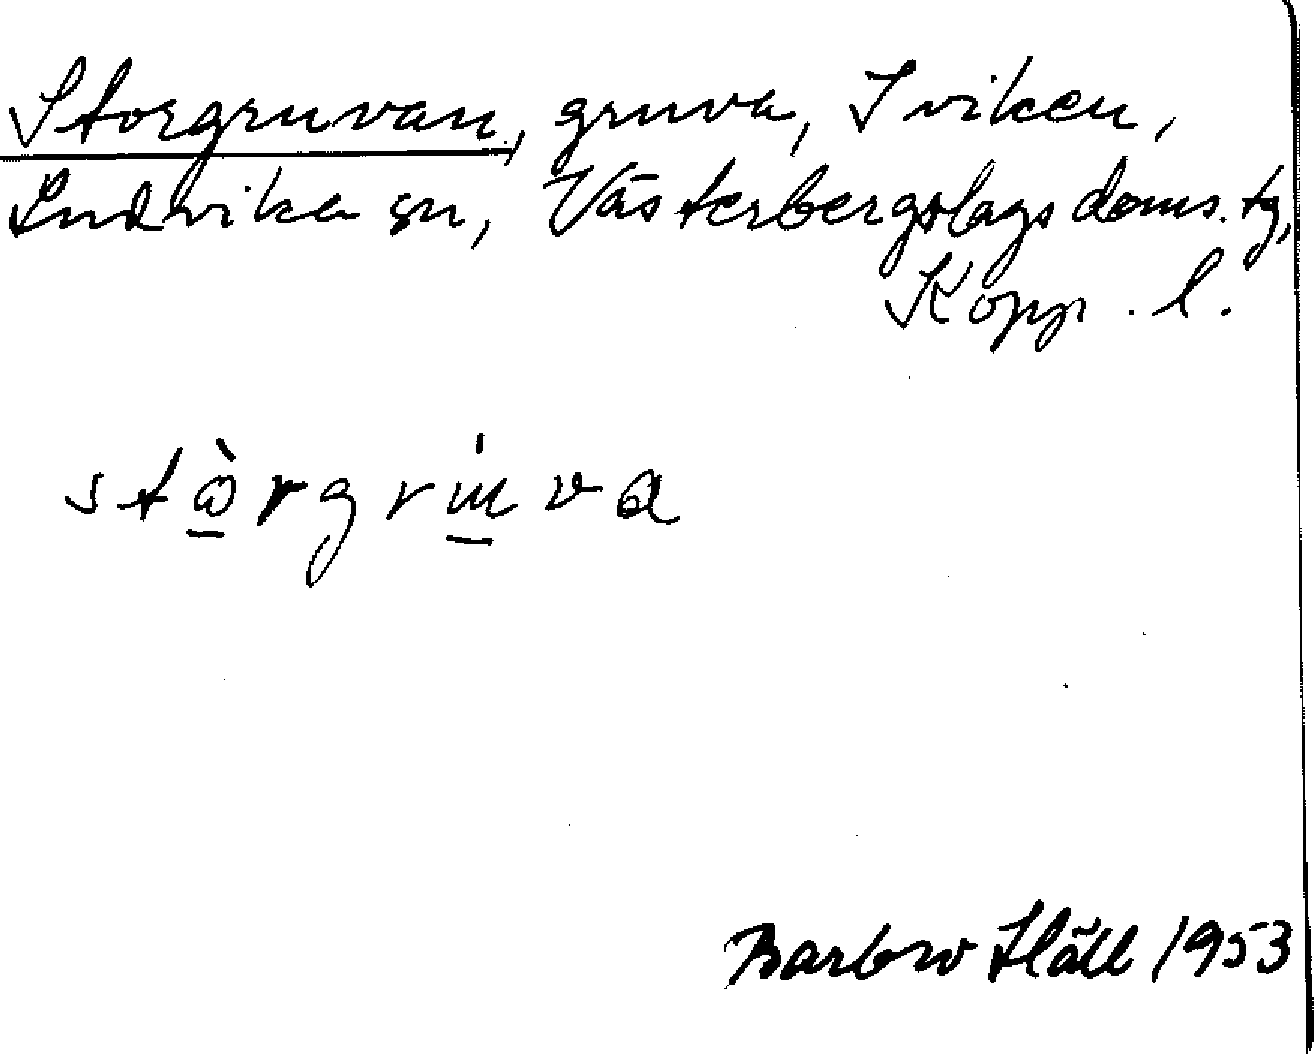 Storgruvan, gruva, Iviken,
Ludvika sn, Västerbergslags doms. tg,
Kopp. l.
stὼ̲rgrɯ̲́va
Barbro Häll 1953